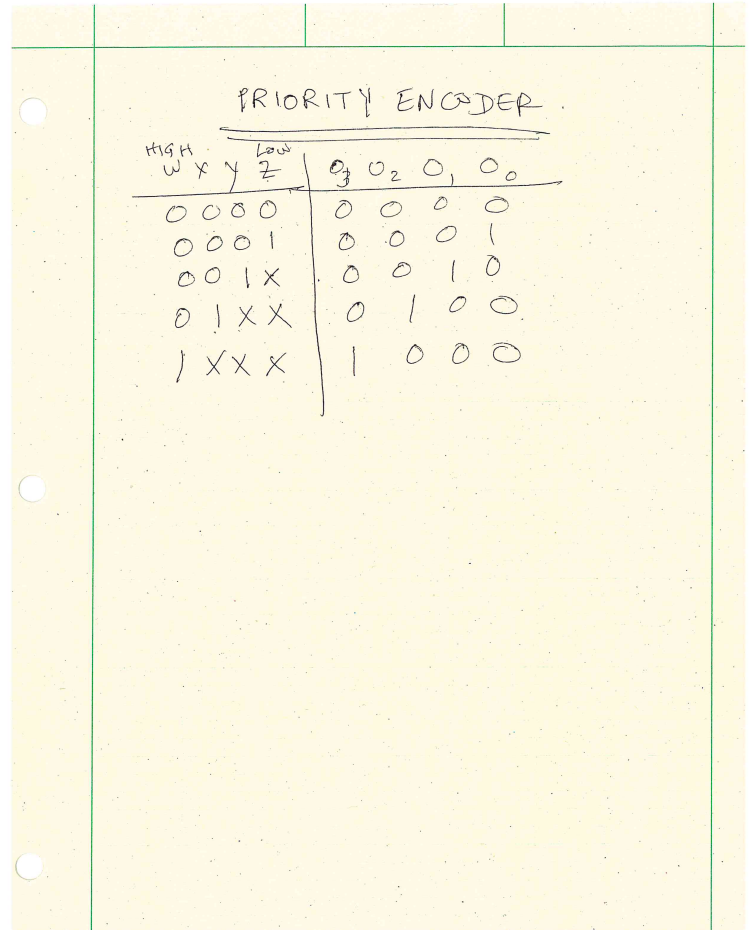 PRIORITY ENCODER
HIGH LOW
W X Y Z O3 O2 O1 O0
0 0 0 0 0 0 0 0
0 0 0 1 0 0 0 1
0 0 1 X 0 0 1 0
0 1 X X 0 1 0 0
1 X X X 1 0 0 0